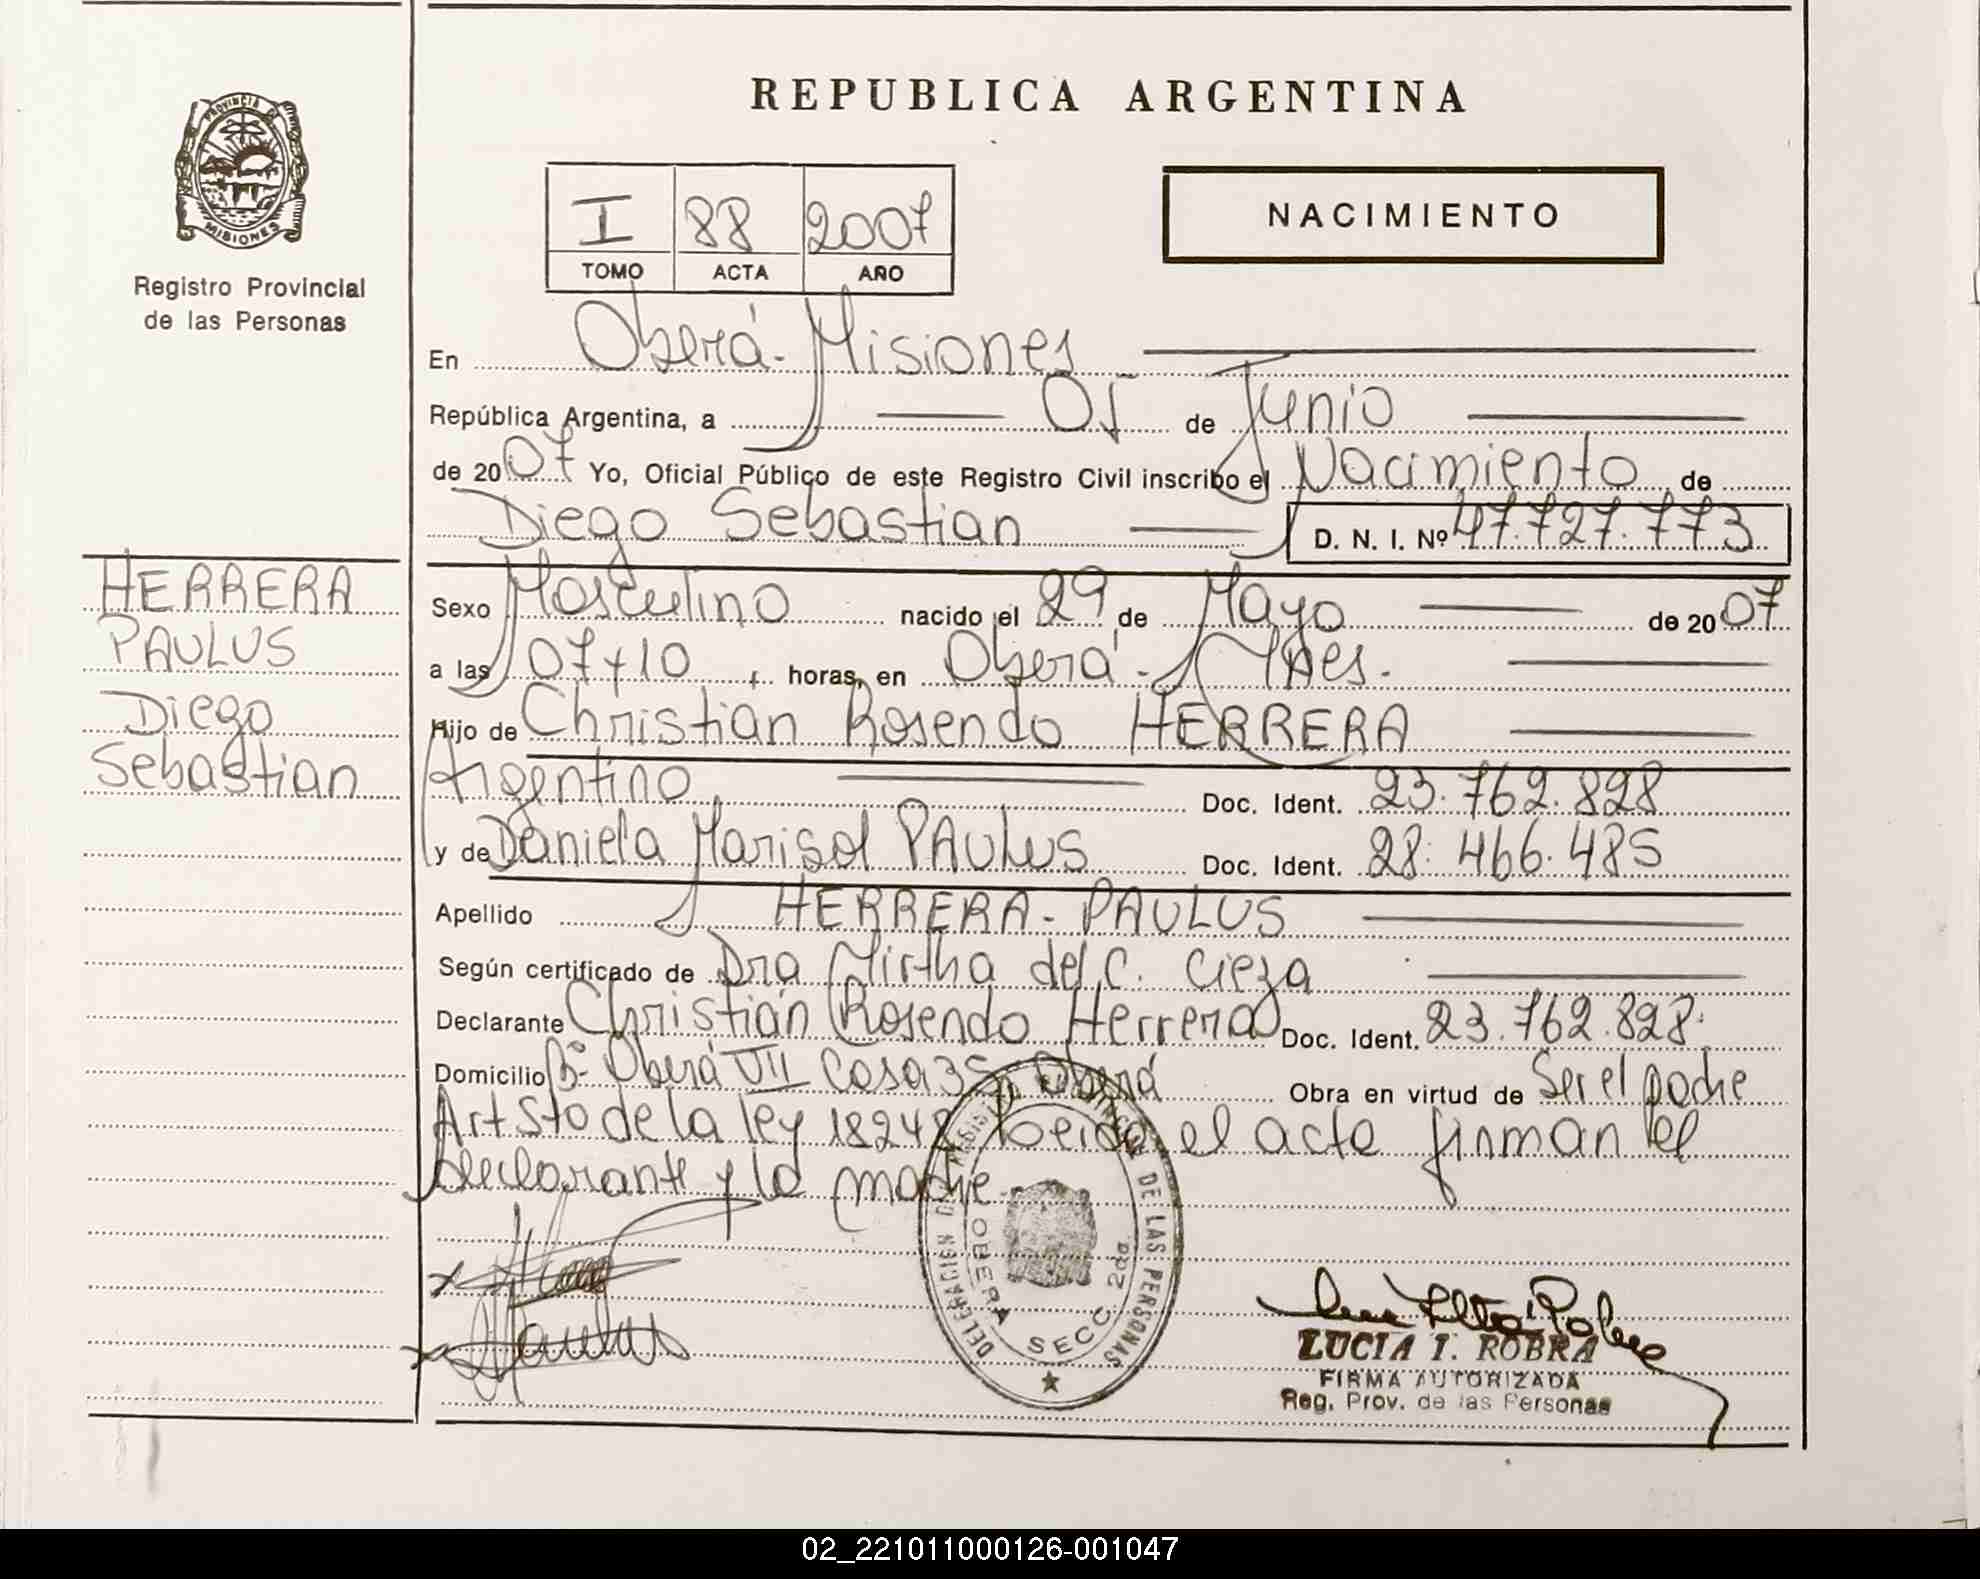 REPUBLICA ARGENTINA
PROVINCIA DE
MISIONES
Registro Provincial
de las Personas
I 88 2007
TOMO ACTA AÑO
NACIMIENTO
En Oberá - Misiones
República Argentina, a 05 de Junio
de 2007 Yo, Oficial Público de este Registro Civil inscribo el Nacimiento de
Diego Sebastian D. N. I. Nº 47.727.773
HERRERA
PAULUS
Diego
Sebastian
Sexo Masculino nacido el 29 de Mayo de 2007
a las 07 y 10 horas, en Oberá - Mnes.
Hijo de Christian Rosendo HERRERA
Argentino Doc. Ident. 23.762.828
y de Daniela Marisol PAULUS Doc. Ident. 28.466.485
Apellido HERRERA - PAULUS
Según certificado de Dra Mirtha del C. Cieza
Declarante Christian Rosendo Herrera Doc. Ident. 23.762.828.
Domicilio Bº Oberá VII Casa 35 Oberá Obra en virtud de Ser el padre
Art 5to de la ley 18248 Leida el acta firman el
declarante y la madre
DELEGACION DE LAS PERSONAS
OBERA SECC. 2da.
Paulus
LUCIA I. ROBRA
FIRMA AUTORIZADA
Reg. Prov. de las Personas
02_221011000126-001047